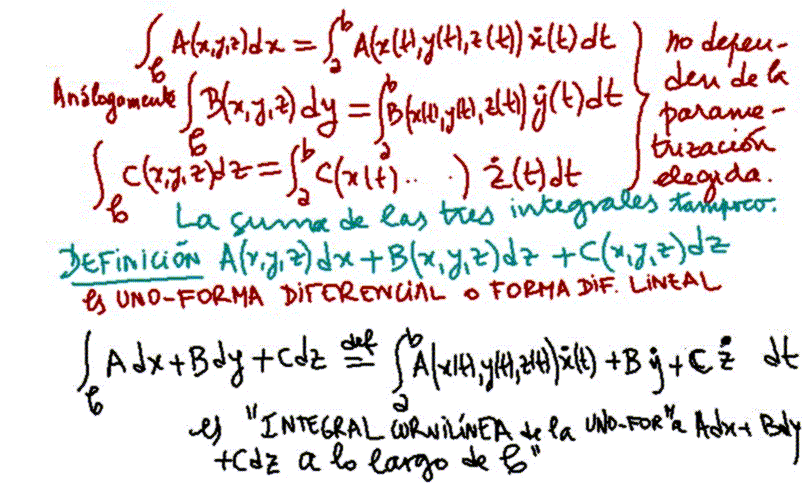 ∫_𝒞 A(x,y,z)dx = ∫_a^b A(x(t),y(t),z(t)) ẋ(t)dt } no depen-
Análogamente ∫_𝒞 B(x,y,z)dy = ∫_a^b B(x(t),y(t),z(t)) ẏ(t)dt den de la
parame-
∫_𝒞 C(x,y,z)dz = ∫_a^b C(x(t)...) ż(t)dt trización
elegida.
La suma de las tres integrales tampoco.
DEFINICIÓN A(x,y,z)dx + B(x,y,z)dz + C(x,y,z)dz
es UNO-FORMA DIFERENCIAL o FORMA DIF. LINEAL
∫_𝒞 Adx + Bdy + Cdz =^{def} ∫_a^b A(x(t),y(t),z(t))ẋ(t) + B ẏ + C ż dt
es "INTEGRAL CURVILÍNEA de la UNO-FOR"a Adx + Bdy
+Cdz a lo largo de 𝒞"